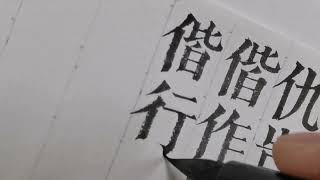 仇
偕作
偕行